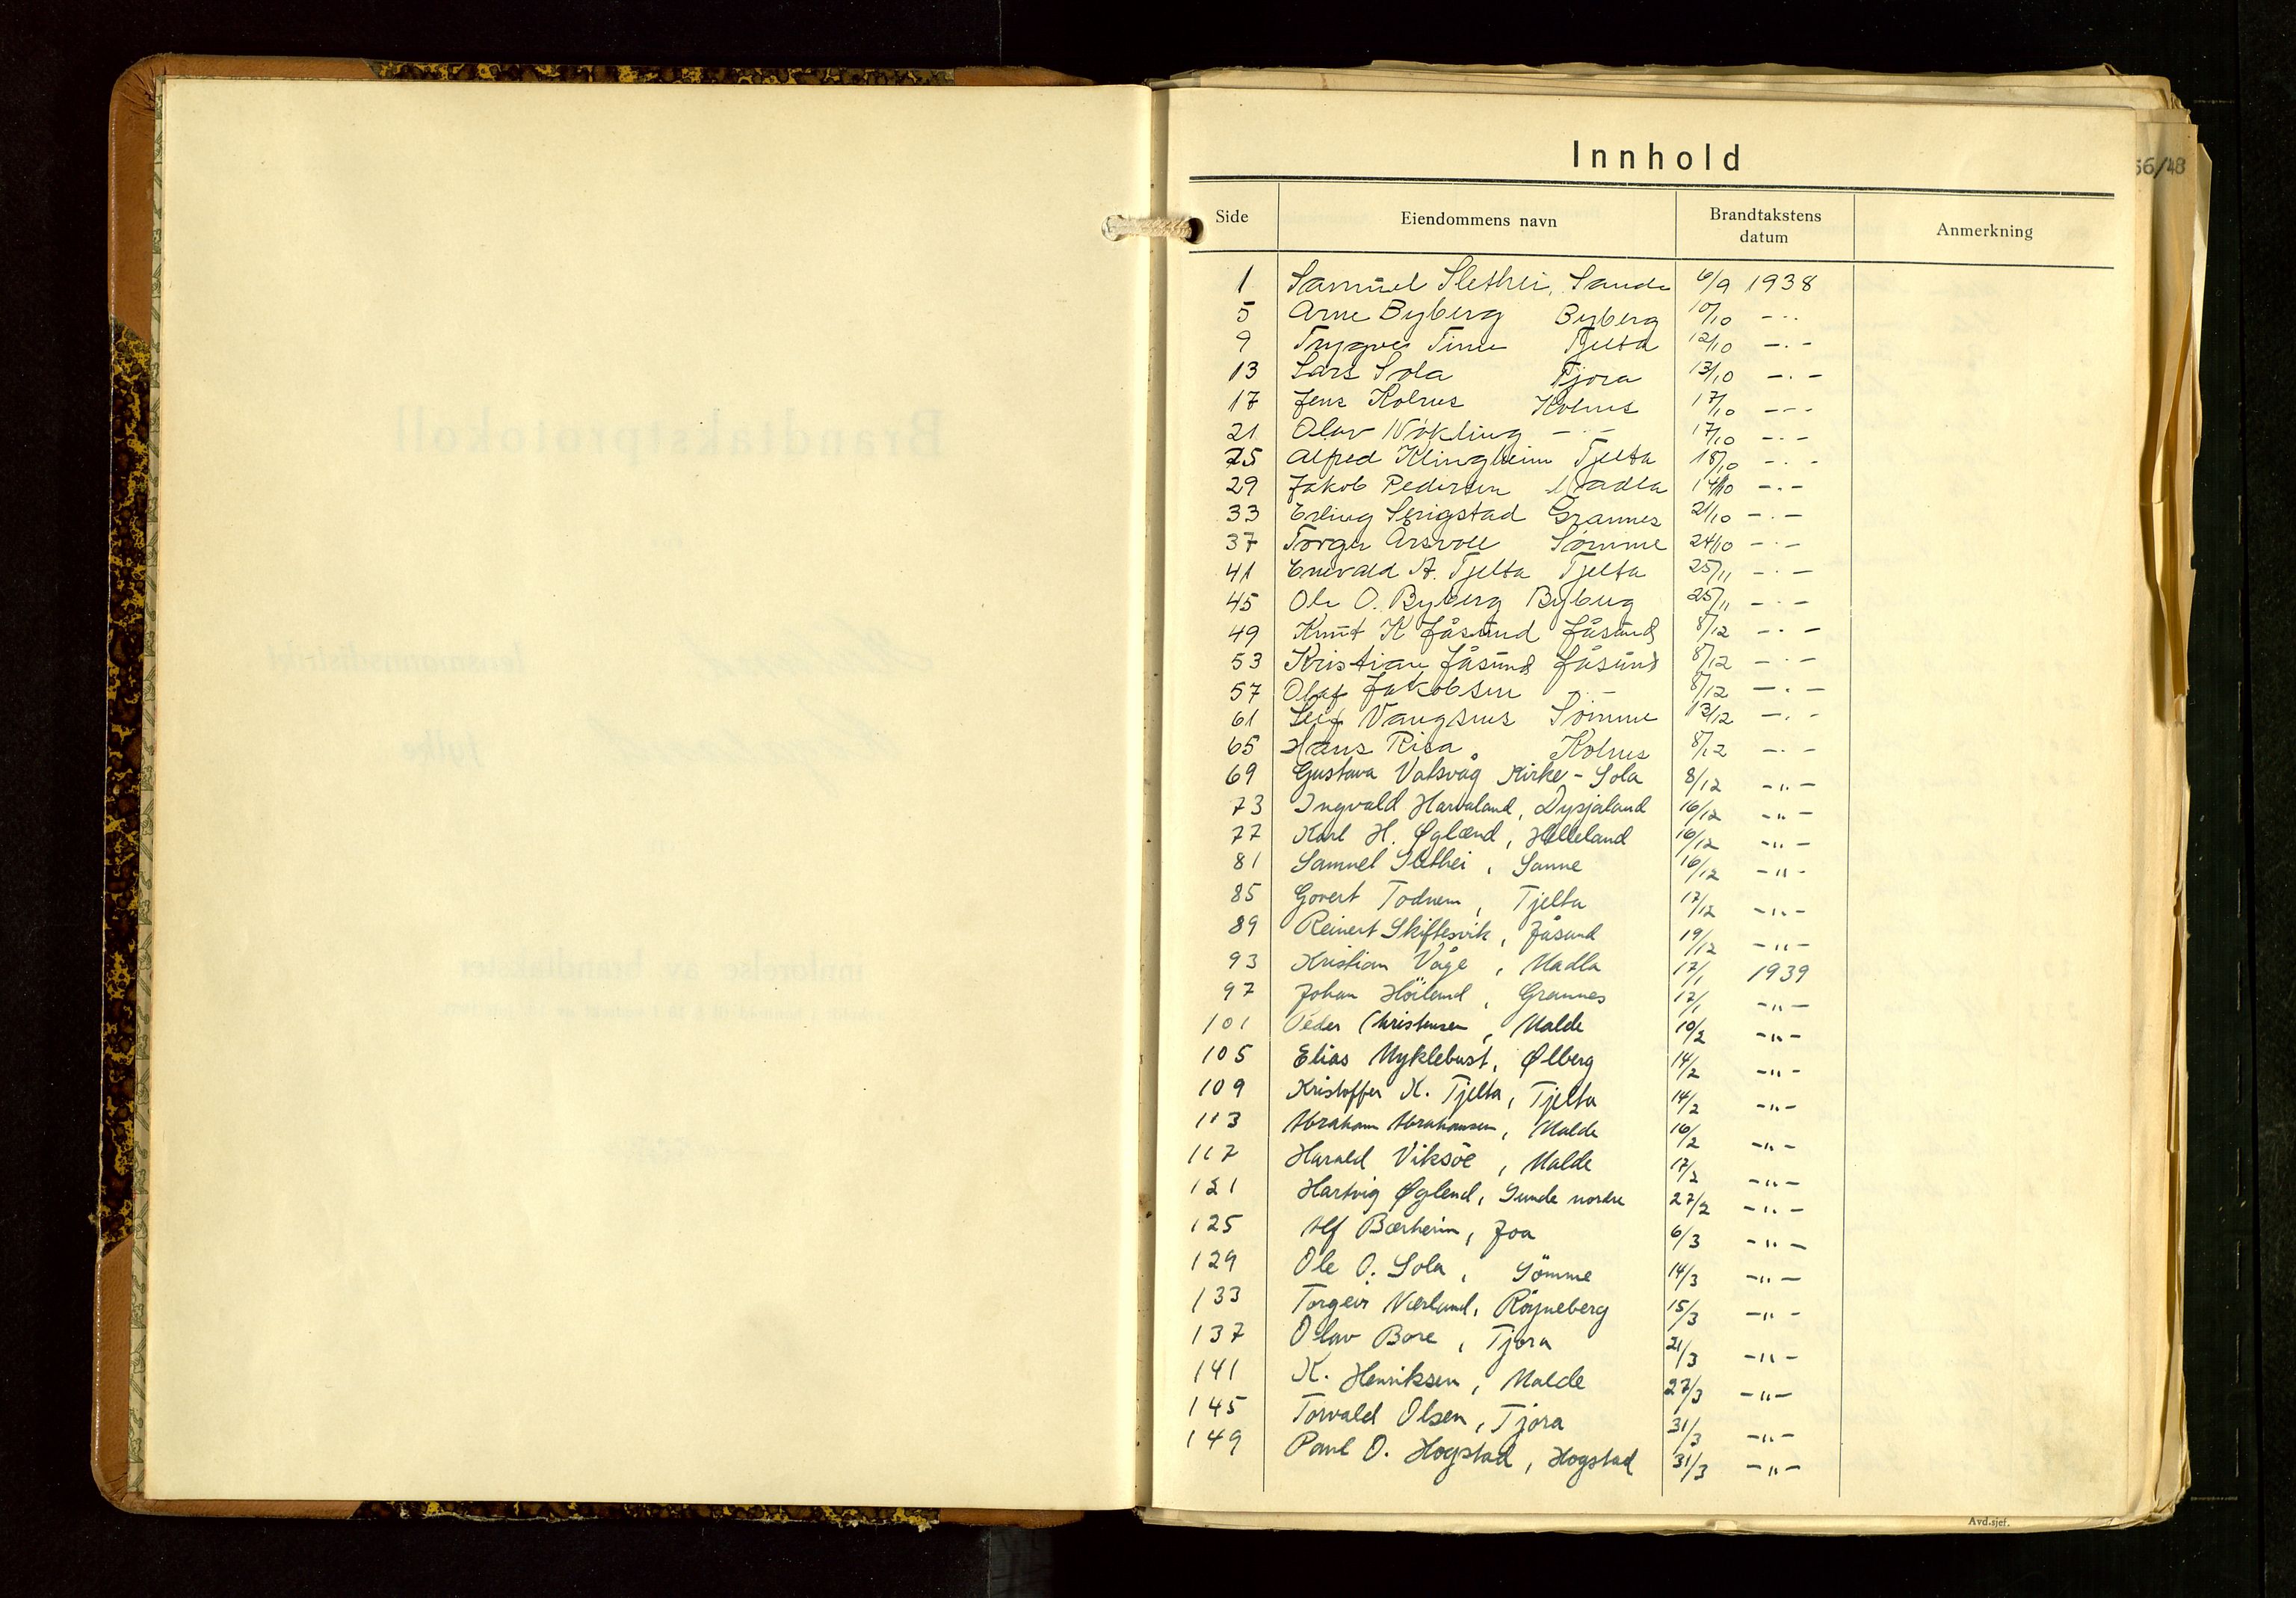 Innhold
56/48
Side Eiendommens navn Brandtakstens datum Anmerkning
1 Samuel Slethei, Sande 6/9 1938
5 Arne Byberg Byberg 10/10 -"-
9 Trygve Time Tjelta 12/10 -"-
13 Lars Sola Tjora 13/10 -"-
17 Jens Kolnes Kolnes 17/10 -"-
21 Olav Nökling -"- 17/10 -"-
25 Alfred Klingheim Tjelta 18/10 -"-
29 Jakob Pedersen Madla 14/10 -"-
33 Erling Serigstad Grannes 21/10 -"-
37 Torger Arsvoll Sömme 24/10 -"-
41 Enevald A. Tjelta Tjelta 25/11 -"-
45 Ole O. Byberg Byberg 25/11 -"-
49 Knut K Jåsund Jåsund 8/12 -"-
53 Kristian Jåsund Jåsund 8/12 -"-
57 Olaf Jakobsen -"- 8/12 -"-
61 Leif Vangsnes Sömme 13/12 -"-
65 Hans Risa Kolnes 8/12 -"-
69 Gustava Vatsvåg Kirke-Sola 8/12 -"-
73 Ingvald Harvaland, Dysjaland 16/12 -"-
77 Karl H. Øglænd, Helleland 16/12 -"-
81 Samuel Slethei, Sanne 16/12 -"-
85 Govert Todnem, Tjelta 17/12 -"-
89 Reinert Skiftesvik, Jåsund 19/12 -"-
93 Kristian Våge, Madla 17/1 1939
97 Johan Höiland, Grannes 17/1 -"-
101 Peder Christensen, Malde 10/2 -"-
105 Elias Myklebust, Ølberg 14/2 -"-
109 Kristoffer K. Tjelta, Tjelta 14/2 -"-
113 Abraham Abrahamsen, Malde 16/2 -"-
117 Harald Viksöe, Malde 17/2 -"-
121 Hartvig Øglend, Sunde nordre 27/2 -"-
125 Alf Bærheim, Joa 6/3 -"-
129 Ole O. Sola, Sömme 14/3 -"-
133 Torgeir Nærland, Röyneberg 15/3 -"-
137 Olav Bore, Tjora 21/3 -"-
141 K. Henriksen, Malde 27/3 -"-
145 Torvald Olsen, Tjora 31/3 -"-
149 Paul O. Hogstad, Hogstad 31/3 -"-
Avd.sjef.